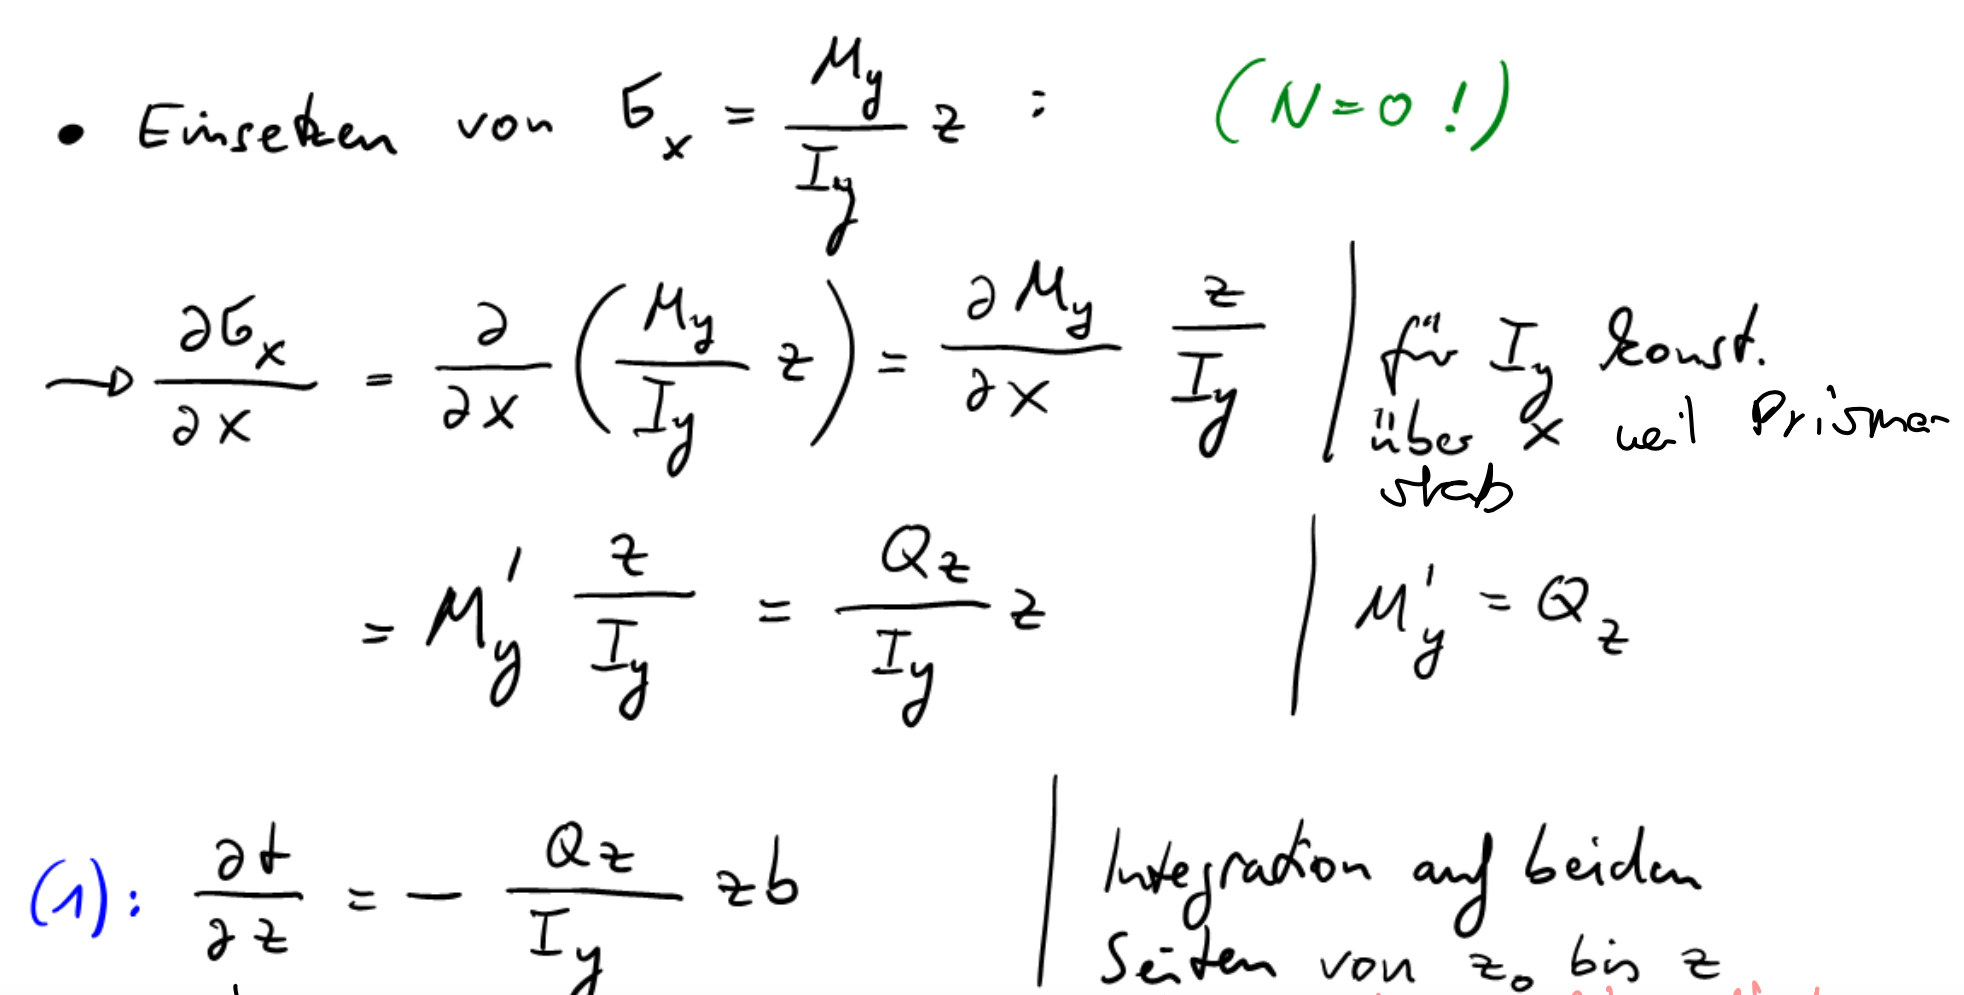 • Einsetzen von σ_x = M_y / I_y z : (N=0!)
→ ∂σ_x / ∂x = ∂ / ∂x ( M_y / I_y z ) = ∂M_y / ∂x z / I_y | für I_y konst.
über x weil Prisma-
stab
= M_y' z / I_y = Q_z / I_y z | M_y' = Q_z
(1): ∂t / ∂z = - Q_z / I_y z b | Integration auf beiden
Seiten von z_0 bis z